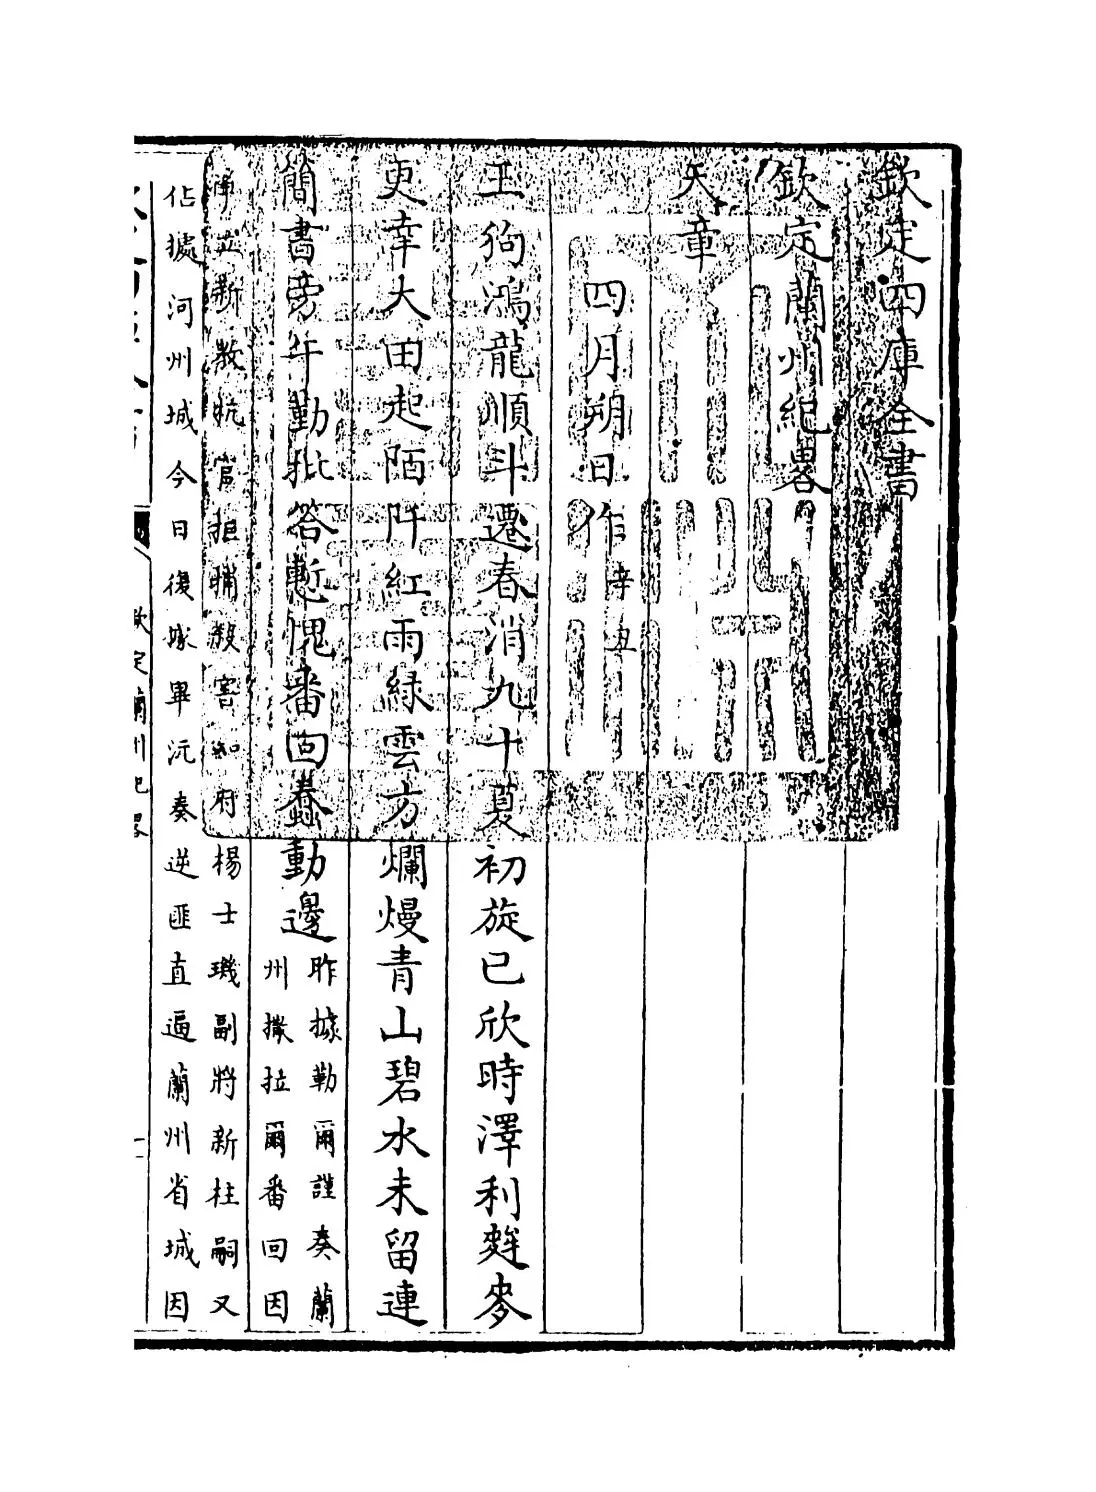 欽定四庫全書
欽定蘭州紀畧
天章
四月朔日作辛丑
玉狗鴻龍順斗遷春消九十夏初旋已欣時澤利麰麥
更幸大田起陌阡紅雨緑雲方爛熳青山碧水未留連
簡書旁午勤批答慙愧番回蠢動邊
昨據勒爾謹奏蘭
州撒拉爾番回因
爭立新教抗官拒捕殺害知府楊士璣副將新柱嗣又
佔據河州城今日復據畢沅奏逆匪直逼蘭州省城因